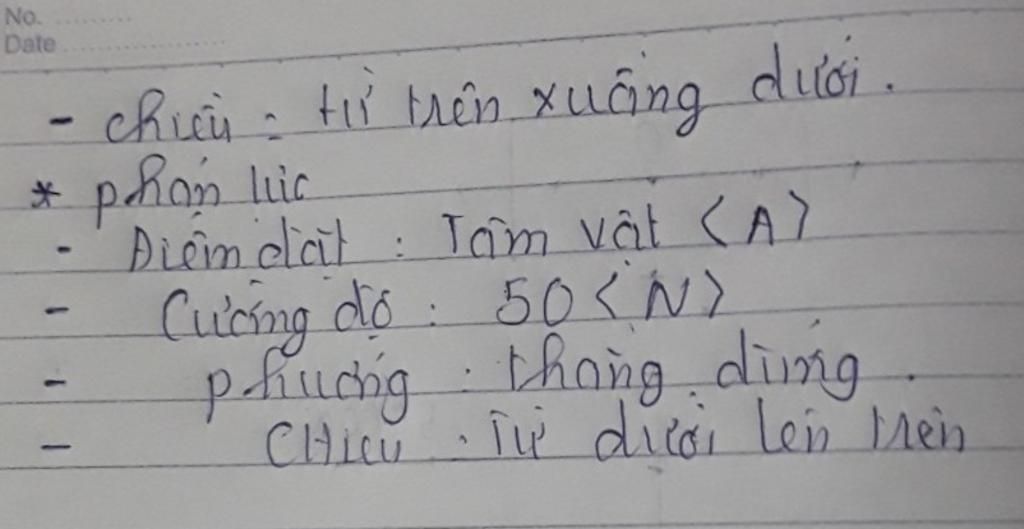 No. ............
Date ........................
- chiều : từ trên xuống dưới.
* phản lực
- Điểm đặt : Tâm vật <A>
- Cường độ : 50 <N>
- phương : thẳng đứng.
- CHiều : Từ dưới lên trên